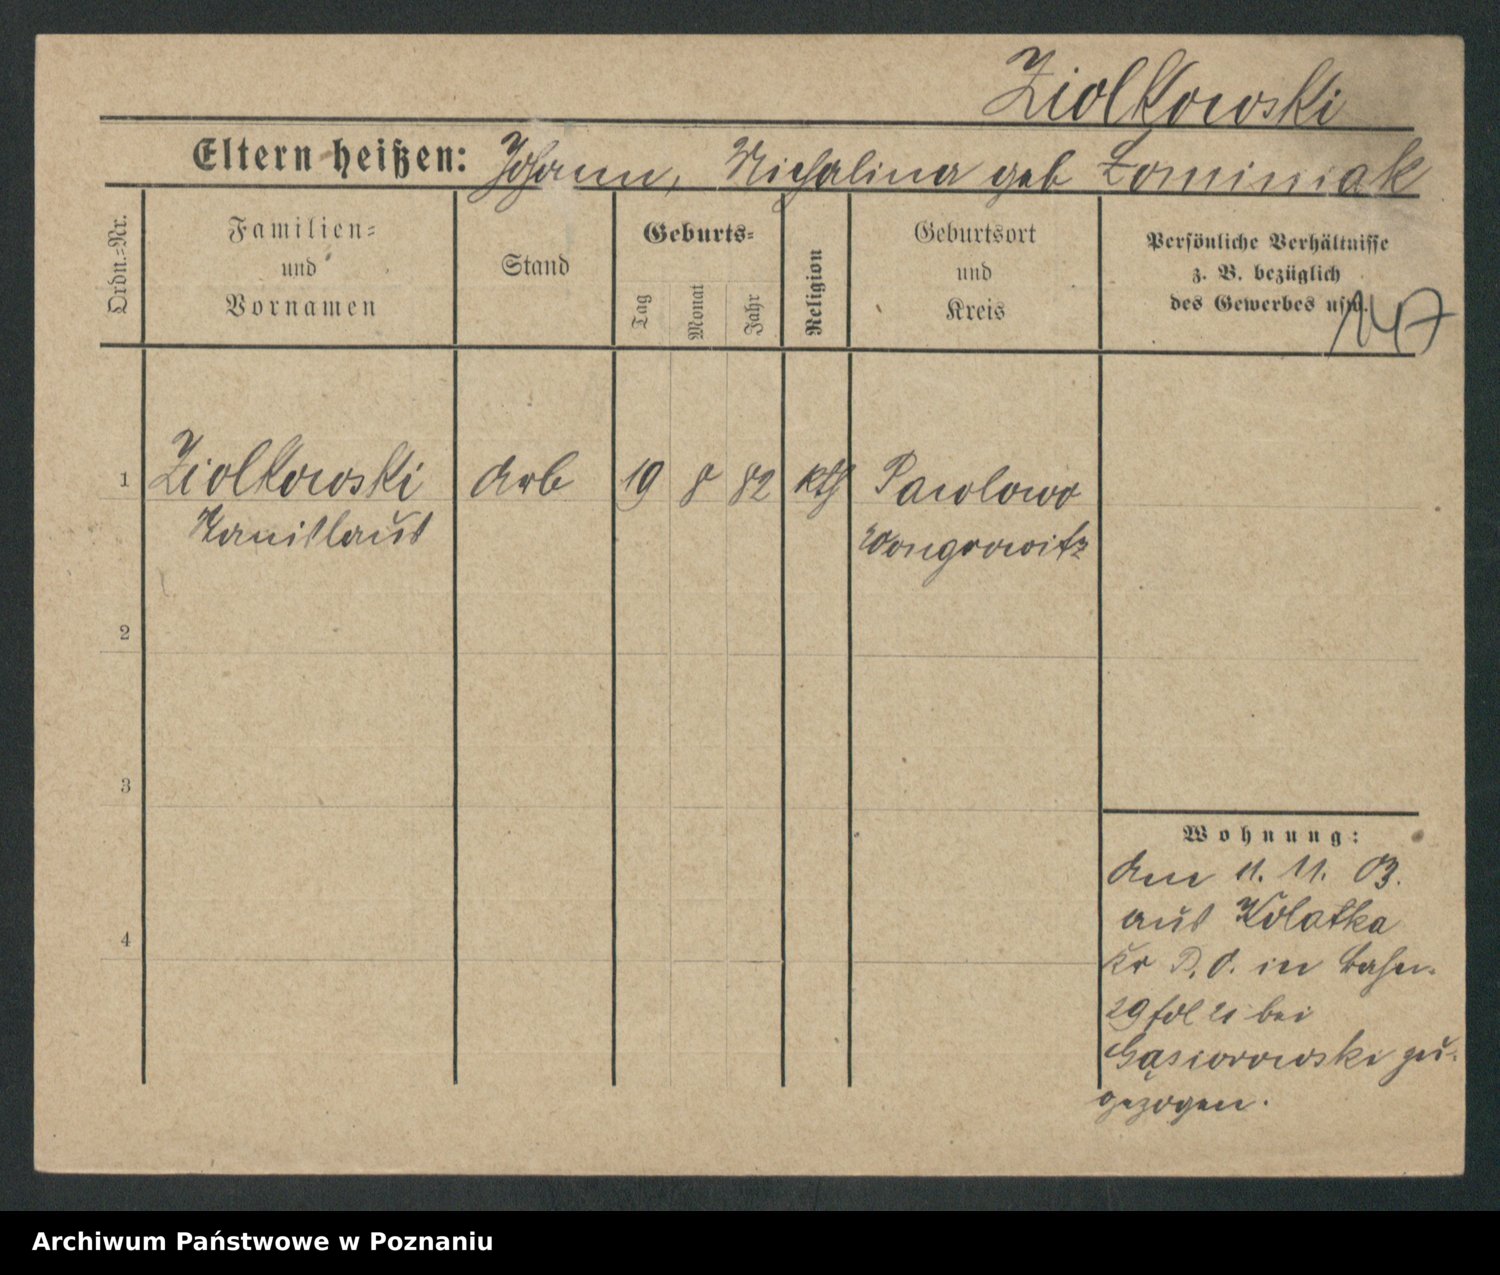 Ziolkowski
Eltern heißen: Johann, Michalina geb Łominiak
Ordn.-Nr.
Familien-
und
Vornamen
Stand
Geburts-
Tag
Monat
Jahr
Religion
Geburtsort
und
Kreis
Persönliche Verhältnisse
z. B. bezüglich
des Gewerbes usw.
147
1 Ziolkowski Arb 19 8 82 kth Pawlowo
Stanislaus Wongrowitz
2
3
Wohnung:
4
Am 11. 11. 03.
aus Kolatka
Kr P. O. in
29 bei
Gąsiorowski zu-
gezogen.
Archiwum Państwowe w Poznaniu